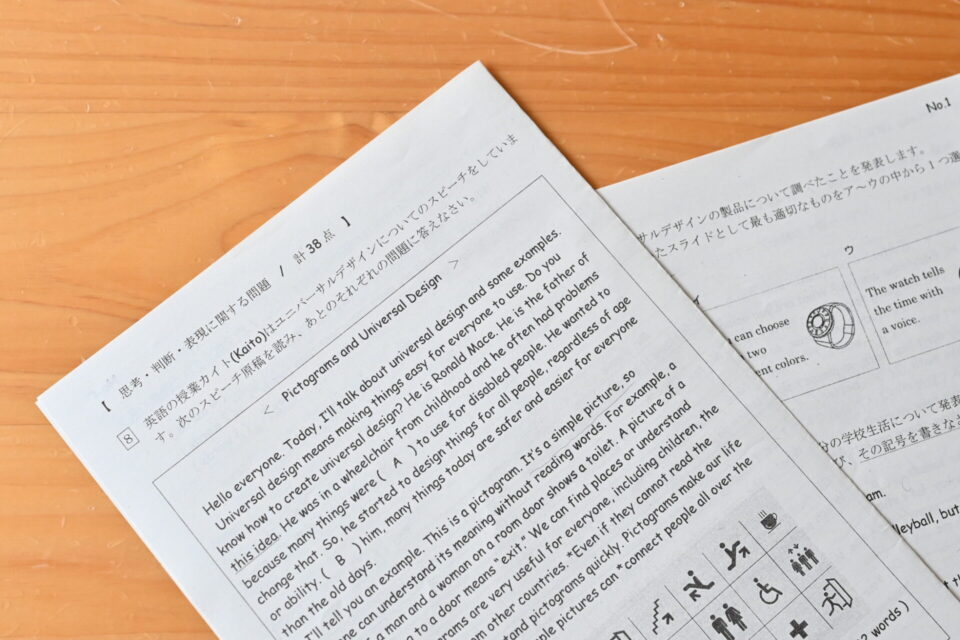 【 思考・判断・表現に関する問題 / 計 38 点 】
8 英語の授業カイト(Kaito)はユニバーサルデザインについてのスピーチをしていま
す。次のスピーチ原稿を読み、あとのそれぞれの問題に答えなさい。
< Pictograms and Universal Design >
Hello everyone. Today, I'll talk about universal design and some examples.
Universal design means making things easy for everyone to use. Do you
know how to create universal design? He is Ronald Mace. He is the father of
this idea. He was in a wheelchair from childhood and he often had problems
because many things were ( A ) to use for disabled people. He wanted to
change that. So, he started to design things for all people, regardless of age
or ability. ( B ) him, many things today are safer and easier for everyone
than the old days.
I'll tell you an example. This is a pictogram. It's a simple picture, so
one can understand its meaning without reading words. For example, a
a man and a woman on a room door shows a toilet. A picture of a
to a door means "exit." We can find places or understand
grams are very useful for everyone, including children, the
om other countries. *Even if they cannot read the
tand pictograms quickly. Pictograms make our life
ple pictures can *connect people all over the
words )
No.1
サルデザインの製品について調べたことを発表します。
たスライドとして最も適切なものをア～ウの中から1つ選
ウ
can choose
two
ent colors.
The watch tells
the time with
a voice.
分の学校生活について発表
び、その記号を書きなさ
am.
lleyball, but